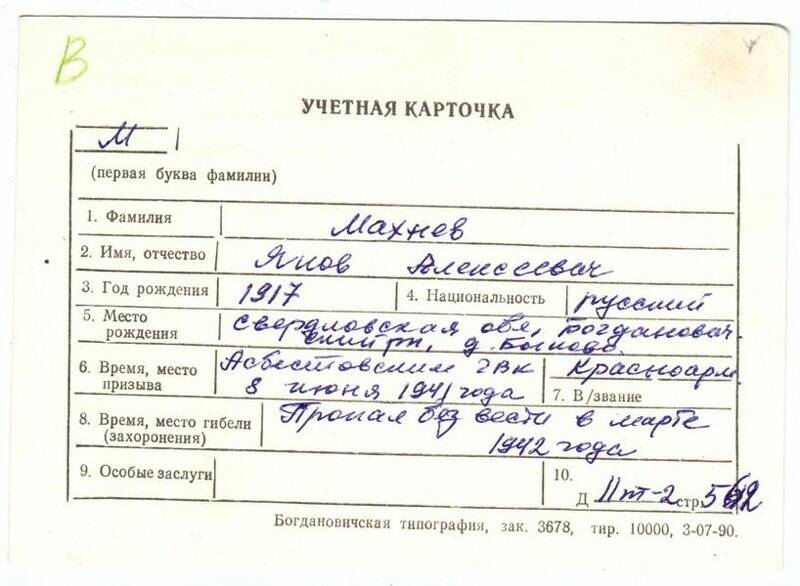 В
УЧЕТНАЯ КАРТОЧКА
М
(первая буква фамилии)
1. Фамилия Махнев
2. Имя, отчество Яков Алексеевич
3. Год рождения 1917 4. Национальность русский
5. Место рождения Свердловская обл, Богданович
ский рн, д.
6. Время, место призыва Асбестовским ГВК
8 июня 1941 года
Красноарм
7. В/звание
8. Время, место гибели (захоронения) Пропал без вести в марте
1942 года
9. Особые заслуги
10.
Д IIтт-2 стр.
Богдановичская типография, зак. 3678, тир. 10000, 3-07-90.